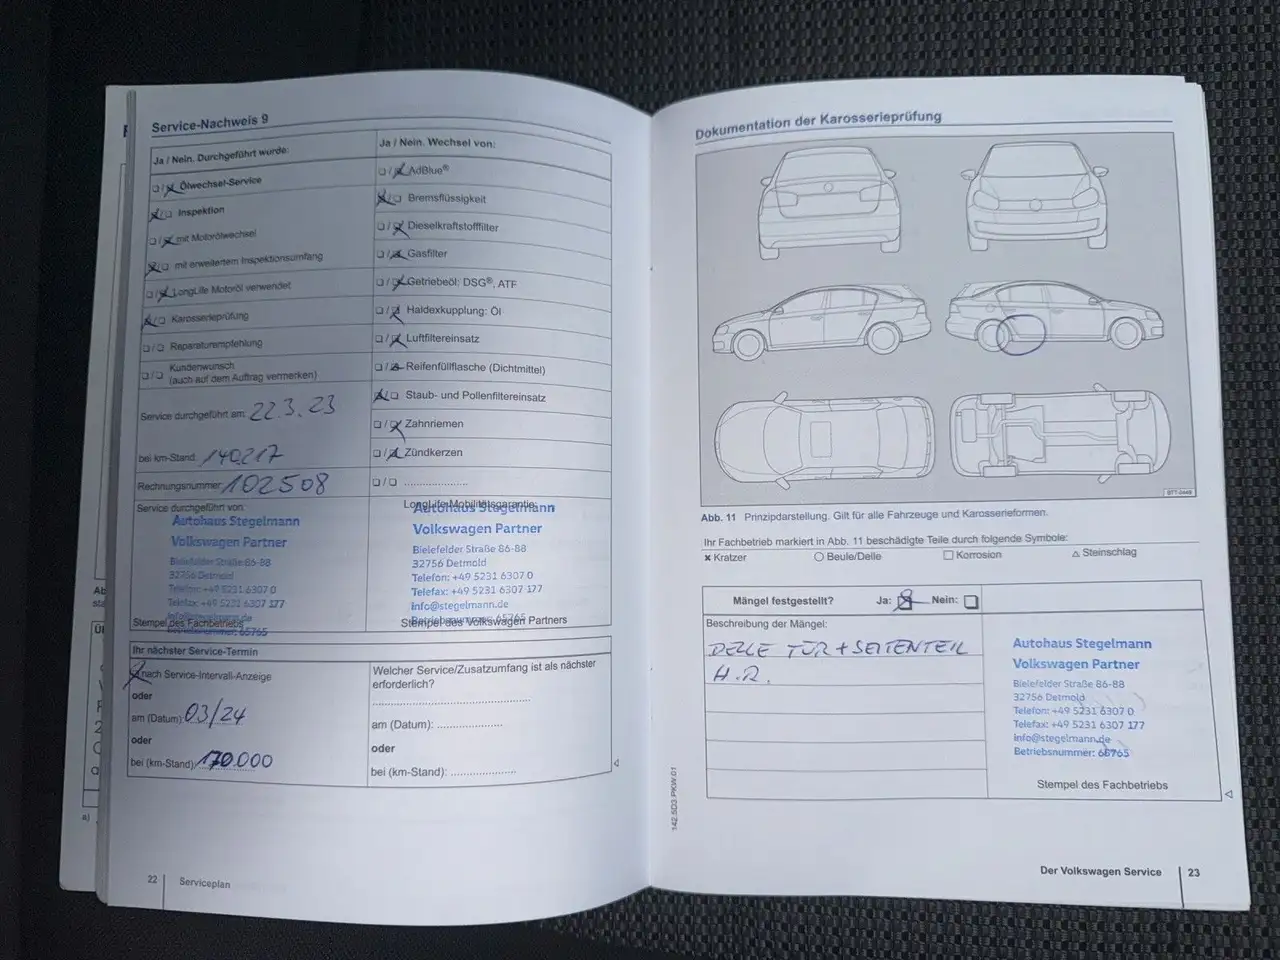 Service-Nachweis 9
Ja / Nein. Durchgeführt wurde:
☐/☒ Ölwechsel-Service
☒/☐ Inspektion
☐/☒ mit Motorölwechsel
☒/☐ mit erweitertem Inspektionsumfang
☐/☒ LongLife Motoröl verwendet
☒/☐ Karosserieprüfung
☐/☐ Reparaturempfehlung
☐/☐ Kundenwunsch
(auch auf dem Auftrag vermerken)
Service durchgeführt am: 22.3.23
bei km-Stand: 140.217
Rechnungsnummer: 102508
Service durchgeführt von:
Autohaus Stegelmann
Volkswagen Partner
Bielefelder Straße 86-88
32756 Detmold
Telefon: +49 5231 6307 0
Telefax: +49 5231 6307 177
info@stegelmann.de
Betriebsnummer: 65765
Stempel des Fachbetriebs
Ja / Nein. Wechsel von:
☐/☒ AdBlue®
☒/☐ Bremsflüssigkeit
☐/☒ Dieselkraftstofffilter
☐/☒ Gasfilter
☐/☒ Getriebeöl: DSG®, ATF
☐/☒ Haldexkupplung: Öl
☐/☒ Luftfiltereinsatz
☐/☒ Reifenfüllflasche (Dichtmittel)
☒/☐ Staub- und Pollenfiltereinsatz
☐/☒ Zahnriemen
☐/☒ Zündkerzen
☐/☐ ....................
LongLife Mobilitätsgarantie:
Autohaus Stegelmann
Volkswagen Partner
Bielefelder Straße 86-88
32756 Detmold
Telefon: +49 5231 6307 0
Telefax: +49 5231 6307 177
info@stegelmann.de
Betriebsnummer: 65765
Stempel des Volkswagen Partners
Ihr nächster Service-Termin
☒ nach Service-Intervall-Anzeige
oder
am (Datum): 03/24
oder
bei (km-Stand): 170.000
Welcher Service/Zusatzumfang ist als nächster
erforderlich?
am (Datum): ....................
oder
bei (km-Stand): ....................
22 Serviceplan
Dokumentation der Karosserieprüfung
B7T-0449
Abb. 11 Prinzipdarstellung. Gilt für alle Fahrzeuge und Karosserieformen.
Ihr Fachbetrieb markiert in Abb. 11 beschädigte Teile durch folgende Symbole:
✖ Kratzer ○ Beule/Delle □ Korrosion △ Steinschlag
Mängel festgestellt? Ja: ☒ Nein: ☐
Beschreibung der Mängel:
DELLE TÜR + SEITENTEIL
H.R.
Autohaus Stegelmann
Volkswagen Partner
Bielefelder Straße 86-88
32756 Detmold
Telefon: +49 5231 6307 0
Telefax: +49 5231 6307 177
info@stegelmann.de
Betriebsnummer: 65765
Stempel des Fachbetriebs
142.5D3.PKW.01
Der Volkswagen Service 23